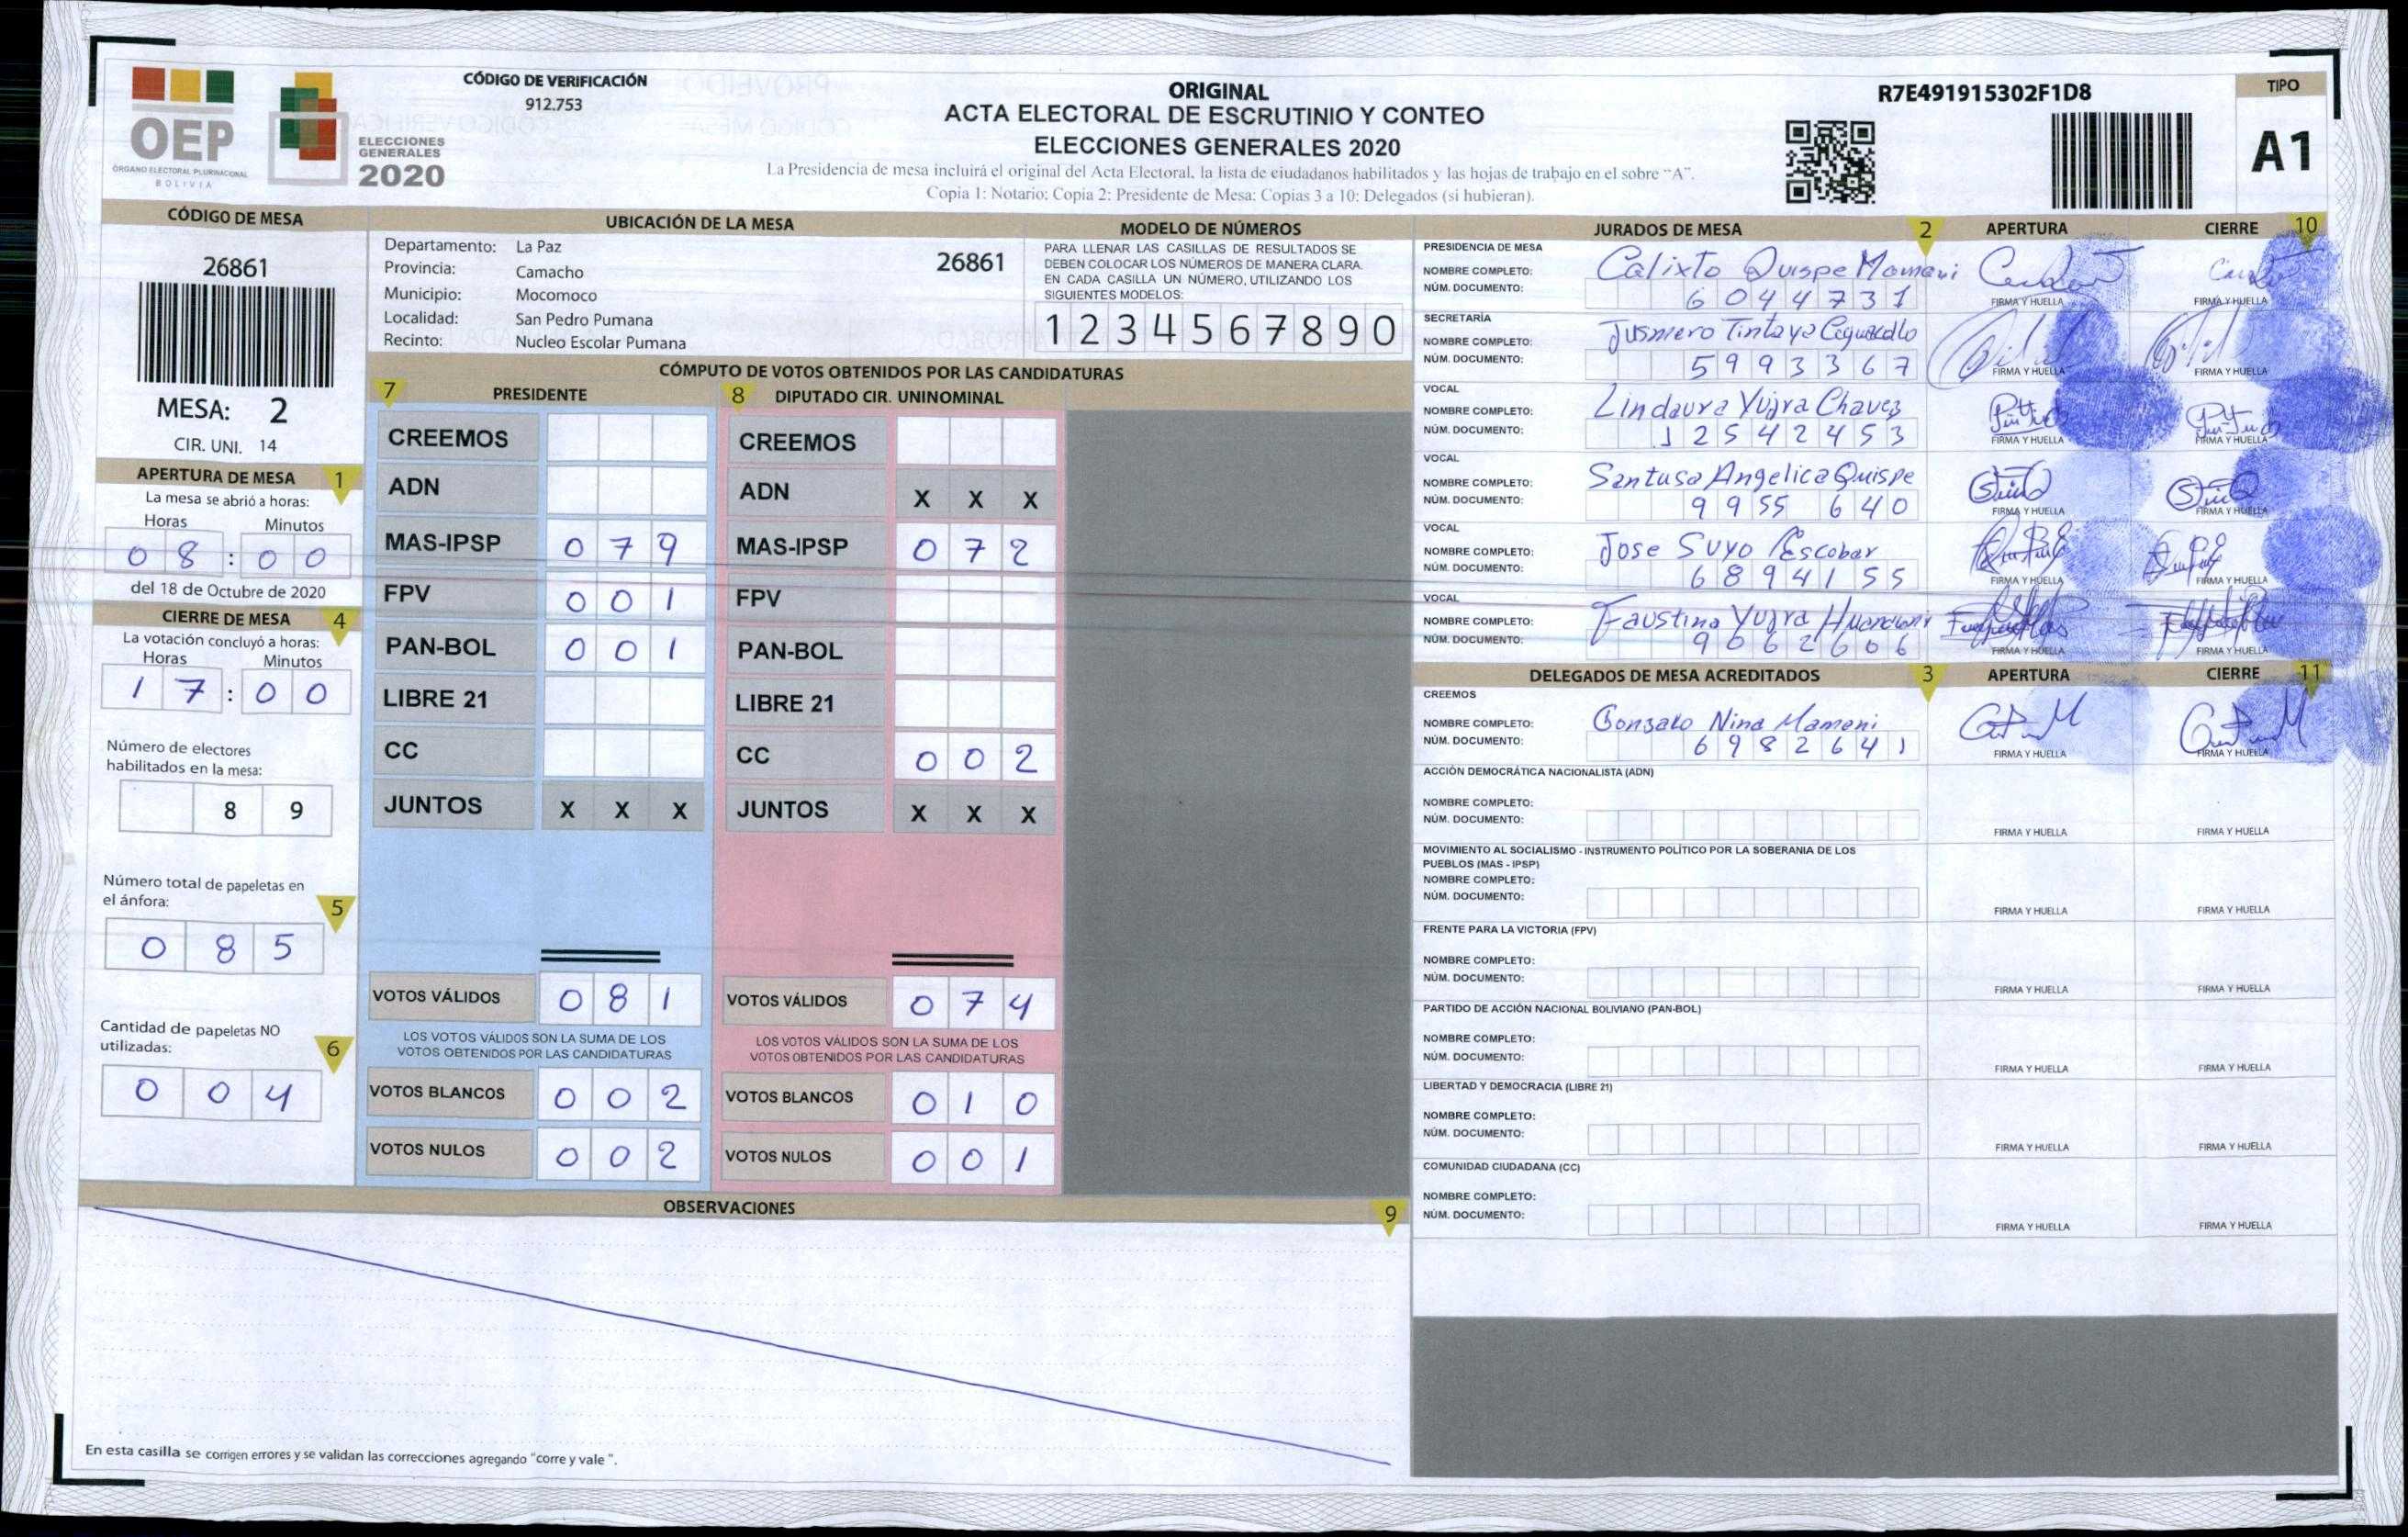 OEP
ÓRGANO ELECTORAL PLURINACIONAL
BOLIVIA
ELECCIONES
GENERALES
2020
CÓDIGO DE VERIFICACIÓN
912.753
ORIGINAL
ACTA ELECTORAL DE ESCRUTINIO Y CONTEO
ELECCIONES GENERALES 2020
La Presidencia de mesa incluirá el original del Acta Electoral, la lista de ciudadanos habilitados y las hojas de trabajo en el sobre "A".
Copia 1: Notario; Copia 2: Presidente de Mesa: Copias 3 a 10: Delegados (si hubieran).
R7E491915302F1D8
TIPO
A1
CÓDIGO DE MESA
26861
MESA: 2
CIR. UNI. 14
APERTURA DE MESA 1
La mesa se abrió a horas:
Horas Minutos
0 8 : 0 0
del 18 de Octubre de 2020
CIERRE DE MESA 4
La votación concluyó a horas:
Horas Minutos
1 7 : 0 0
Número de electores
habilitados en la mesa:
8 9
Número total de papeletas en
el ánfora: 5
0 8 5
Cantidad de papeletas NO
utilizadas: 6
0 0 4
UBICACIÓN DE LA MESA
Departamento: La Paz
Provincia: Camacho
Municipio: Mocomoco
Localidad: San Pedro Pumana
Recinto: Nucleo Escolar Pumana
26861
MODELO DE NÚMEROS
PARA LLENAR LAS CASILLAS DE RESULTADOS SE
DEBEN COLOCAR LOS NÚMEROS DE MANERA CLARA.
EN CADA CASILLA UN NÚMERO, UTILIZANDO LOS
SIGUIENTES MODELOS:
1 2 3 4 5 6 7 8 9 0
CÓMPUTO DE VOTOS OBTENIDOS POR LAS CANDIDATURAS
7 PRESIDENTE
CREEMOS
ADN
MAS-IPSP 0 7 9
FPV 0 0 1
PAN-BOL 0 0 1
LIBRE 21
CC
JUNTOS X X X
VOTOS VÁLIDOS 0 8 1
LOS VOTOS VÁLIDOS SON LA SUMA DE LOS
VOTOS OBTENIDOS POR LAS CANDIDATURAS
VOTOS BLANCOS 0 0 2
VOTOS NULOS 0 0 2
8 DIPUTADO CIR. UNINOMINAL
CREEMOS
ADN X X X
MAS-IPSP 0 7 2
FPV
PAN-BOL
LIBRE 21
CC 0 0 2
JUNTOS X X X
VOTOS VÁLIDOS 0 7 4
LOS VOTOS VÁLIDOS SON LA SUMA DE LOS
VOTOS OBTENIDOS POR LAS CANDIDATURAS
VOTOS BLANCOS 0 1 0
VOTOS NULOS 0 0 1
OBSERVACIONES 9
En esta casilla se corrigen errores y se validan las correcciones agregando "corre y vale ".
JURADOS DE MESA 2 APERTURA CIERRE 10
PRESIDENCIA DE MESA
NOMBRE COMPLETO: Calixto Quispe Mamani
NÚM. DOCUMENTO: 6 0 4 4 7 3 1
FIRMA Y HUELLA FIRMA Y HUELLA
SECRETARÍA
NOMBRE COMPLETO: Tintaya
NÚM. DOCUMENTO: 5 9 9 3 3 6 7
FIRMA Y HUELLA FIRMA Y HUELLA
VOCAL
NOMBRE COMPLETO: Lindaura Yujra Chavez
NÚM. DOCUMENTO: 1 2 5 4 2 4 5 3
FIRMA Y HUELLA FIRMA Y HUELLA
VOCAL
NOMBRE COMPLETO: Santusa Angelica Quispe
NÚM. DOCUMENTO: 9 9 5 5 6 4 0
FIRMA Y HUELLA FIRMA Y HUELLA
VOCAL
NOMBRE COMPLETO: Jose Suyo Escobar
NÚM. DOCUMENTO: 6 8 9 4 1 5 5
FIRMA Y HUELLA FIRMA Y HUELLA
VOCAL
NOMBRE COMPLETO: Faustina Yujra
NÚM. DOCUMENTO: 9 0 6 2 6 0 6
FIRMA Y HUELLA FIRMA Y HUELLA
DELEGADOS DE MESA ACREDITADOS 3 APERTURA CIERRE 11
CREEMOS
NOMBRE COMPLETO: Gonzalo Nina Mamani
NÚM. DOCUMENTO: 6 9 8 2 6 4 1
FIRMA Y HUELLA FIRMA Y HUELLA
ACCIÓN DEMOCRÁTICA NACIONALISTA (ADN)
NOMBRE COMPLETO:
NÚM. DOCUMENTO:
FIRMA Y HUELLA FIRMA Y HUELLA
MOVIMIENTO AL SOCIALISMO - INSTRUMENTO POLÍTICO POR LA SOBERANIA DE LOS
PUEBLOS (MAS - IPSP)
NOMBRE COMPLETO:
NÚM. DOCUMENTO:
FIRMA Y HUELLA FIRMA Y HUELLA
FRENTE PARA LA VICTORIA (FPV)
NOMBRE COMPLETO:
NÚM. DOCUMENTO:
FIRMA Y HUELLA FIRMA Y HUELLA
PARTIDO DE ACCIÓN NACIONAL BOLIVIANO (PAN-BOL)
NOMBRE COMPLETO:
NÚM. DOCUMENTO:
FIRMA Y HUELLA FIRMA Y HUELLA
LIBERTAD Y DEMOCRACIA (LIBRE 21)
NOMBRE COMPLETO:
NÚM. DOCUMENTO:
FIRMA Y HUELLA FIRMA Y HUELLA
COMUNIDAD CIUDADANA (CC)
NOMBRE COMPLETO:
NÚM. DOCUMENTO:
FIRMA Y HUELLA FIRMA Y HUELLA